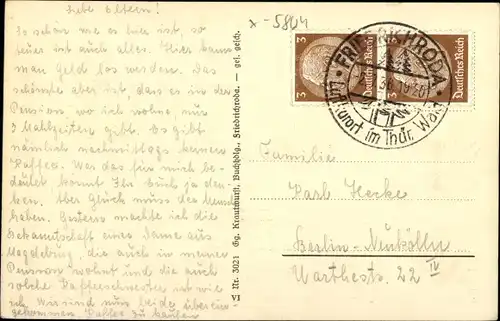 Liebe Eltern!
So schön wie es hier ist, so
teuer ist auch alles. Hier kann
man Geld los werden. Das
schönste aber ist, das es in der
Pension, wo ich wohne, nur
3 Mahlzeiten gibt. Es gibt
nämlich nachmittags keinen
Kaffee. Was das für mich be-
deutet könnt Ihr Euch ja den-
ken. Aber Glück muss der Mensch
haben. Gestern machte ich die
Bekanntschaft einer Dame aus
Magdeburg, die auch in meiner
Pension wohnt und die auch
solche Kaffeeschwester ist wie
ich. Wir sind nun beide überein-
gekommen, Kaffee zu kaufen
VI Nr. 3021 Gg. Krauthurst, Buchhdlg., Friedrichroda. — ges. gesch.
x-5804
3 Deutsches Reich
3 Deutsches Reich
FRIEDRICHRODA
Luftkurort im Thür. Wald
Familie
Karl Hecke
Berlin-Neukölln
Warthestr. 22 IV